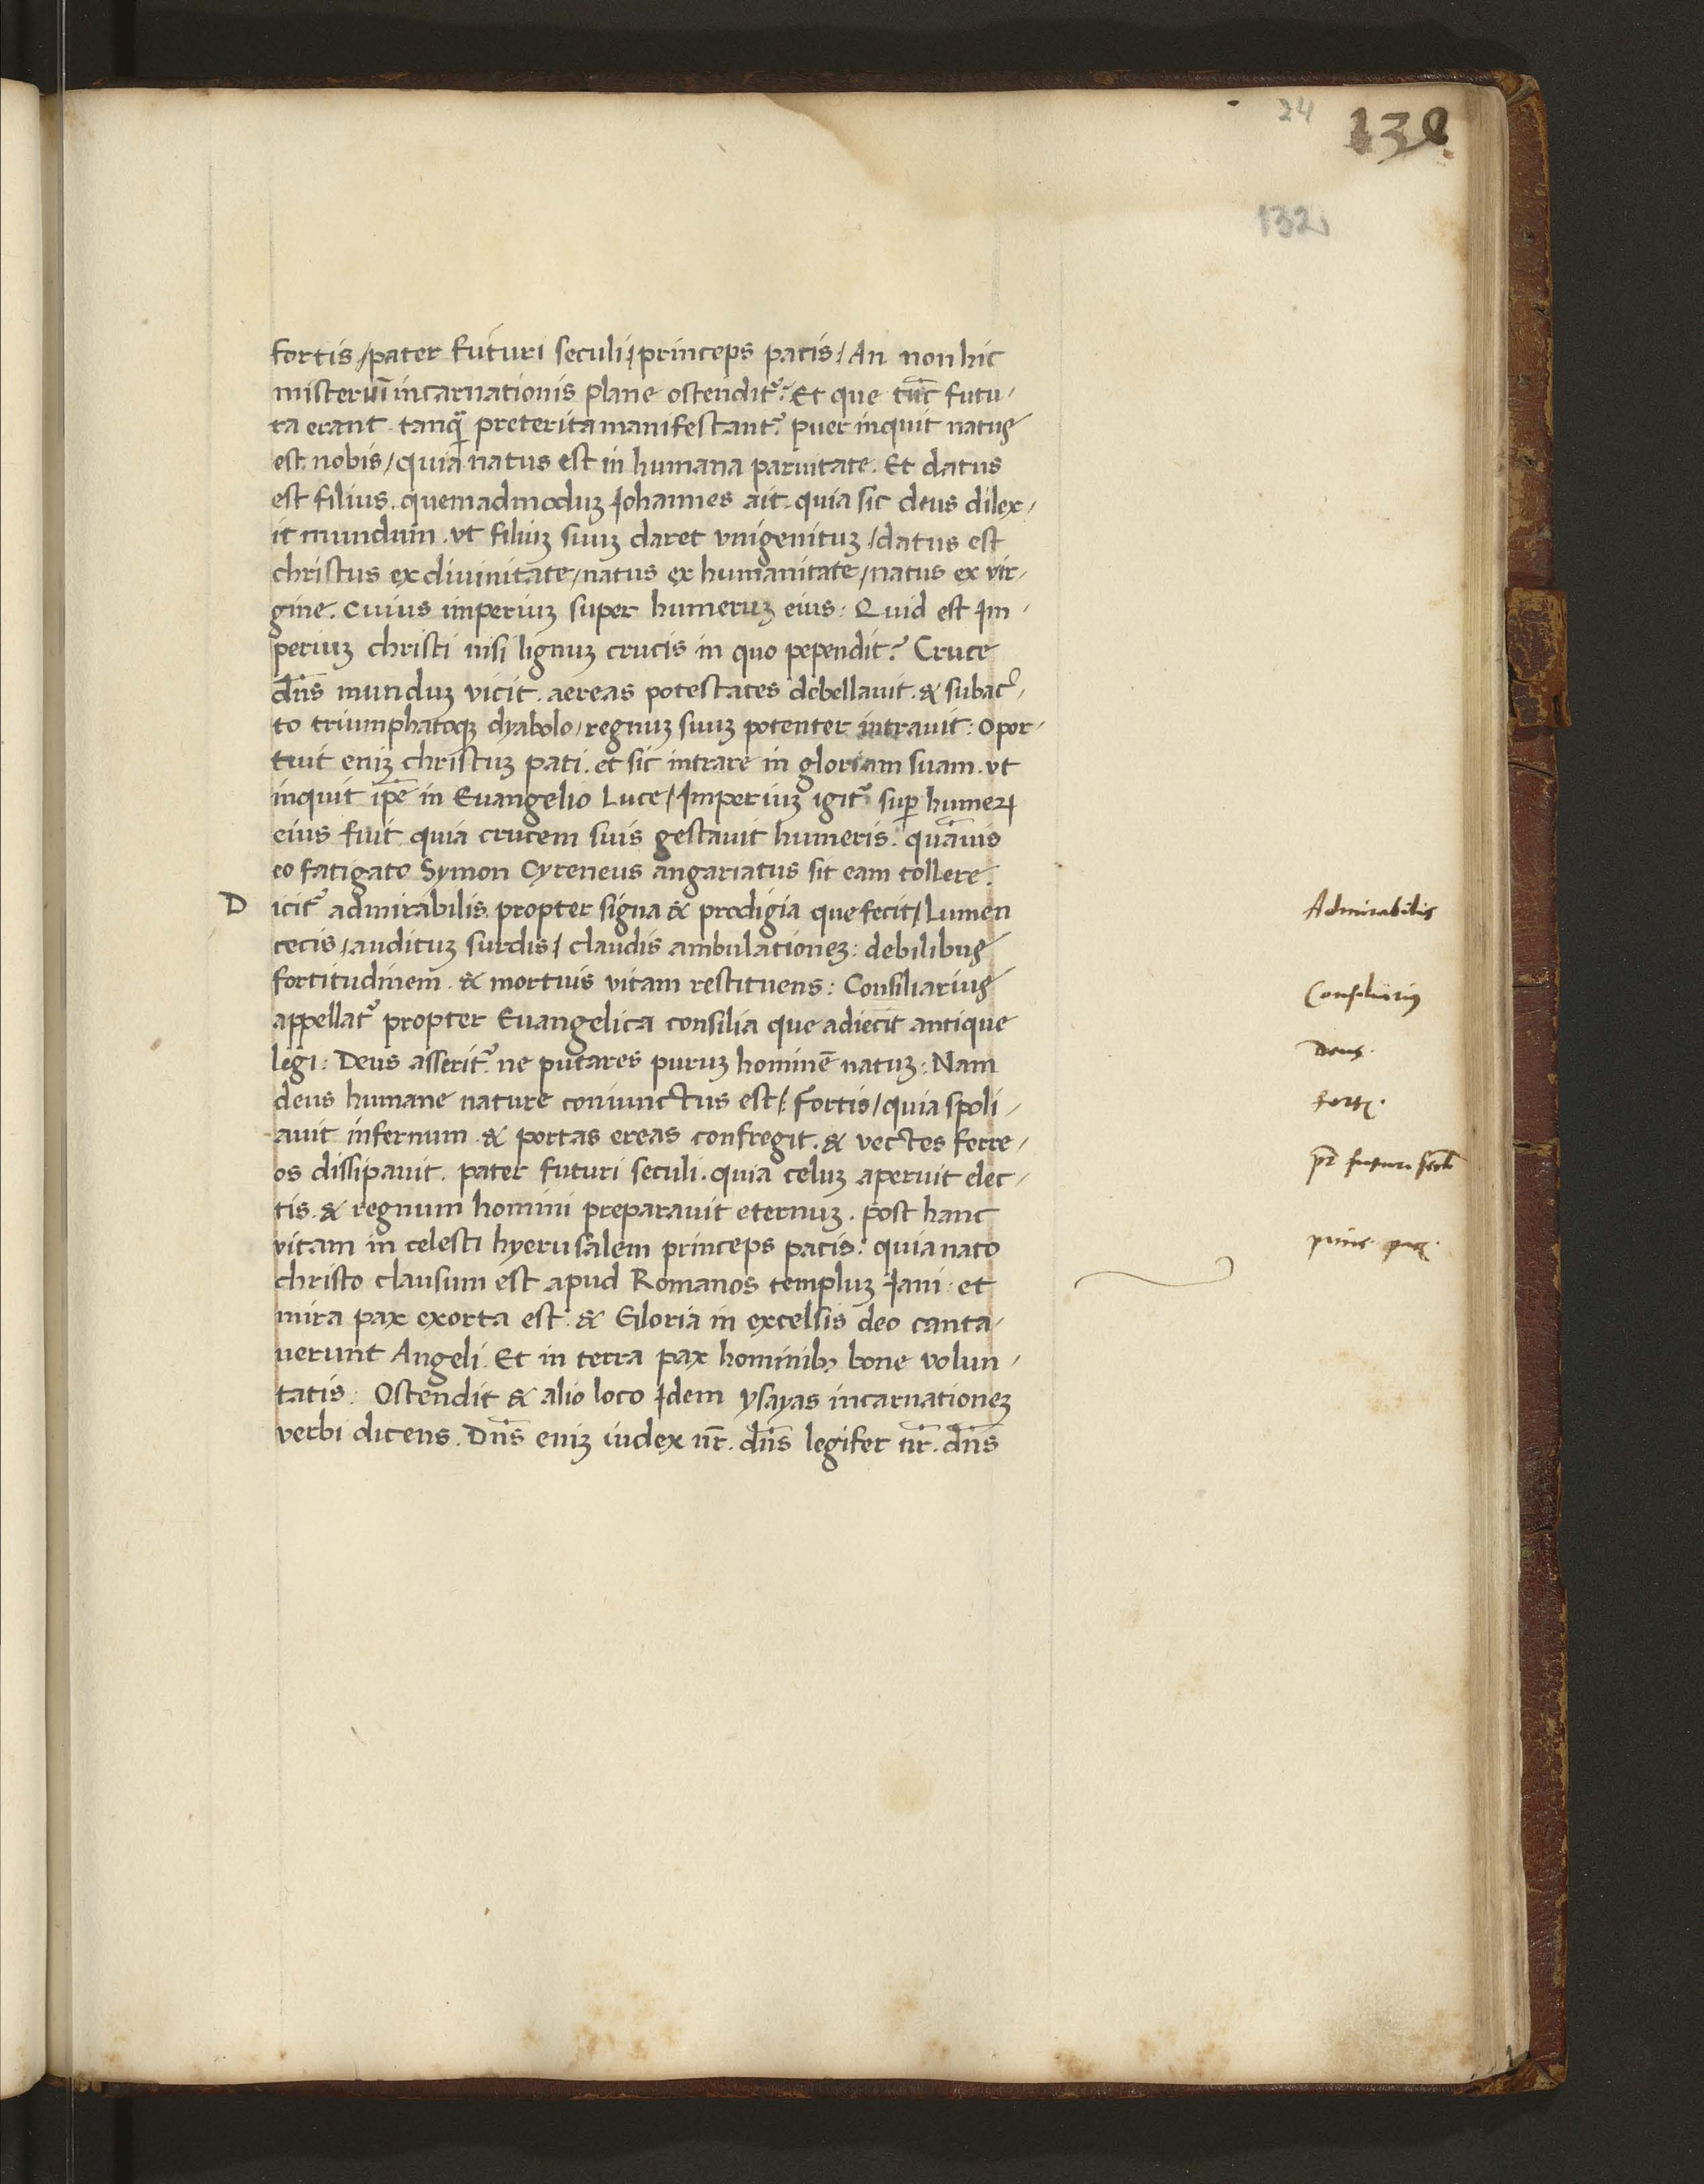 24
132
132
fortis / pater futuri seculi / princeps pacis / An non hic
misteriū incarnationis plane ostendit᷑? Et que tūc futu/
ra erant tanq̄ preterita manifestant᷑. puer inquit natus
est nobis / quia natus est in humana paruitate. Et datus
est filius. quemadmoduʒ Johannes ait. quia sic deus dilex/
it mundum. vt filiuʒ suuʒ daret vnigenituʒ / datus est
christus ex diuinitate / natus ex humanitate / natus ex vir/
gine. Cuius imperiuʒ super humeruʒ eius: Quid est Im/
periuʒ christi nisi lignuʒ crucis in quo pependit? Cruce
dn̄s munduʒ vicit. aereas potestates debellauit. & subac/
to triumphatoqʒ dyabolo / regnuʒ suuʒ potenter intrauit: Opor/
tuit eniʒ christuʒ pati. et sic intrare in gloriam suam. vt
inquit ip̄e in Euangelio Luce / Imperiuʒ igit᷑ suꝑ humeꝝ
eius fuit quia crucem suis gestauit humeris. quāuis
eo fatigato Symon Cyreneus angariatus sit eam tollere.
D icit᷑ admirabilis propter signa & prodigia que fecit / Lumen
cecis / audituʒ surdis / claudis ambulationeʒ: debilibus
fortitudinem & mortuis vitam restituens: Consiliarius
appellat᷑ propter Euangelica consilia que adiecit antique
legi: Deus asserit᷑ ne putares puruʒ hominē natuʒ: Nam
deus humane nature coniunctus est / Fortis / quia spoli/
auit infernum & portas ereas confregit. & vectes ferre/
os dissipauit. pater futuri seculi. quia celuʒ aperuit elec/
tis. & regnum homini preparauit eternuʒ. post hanc
vitam in celesti hyerusalem princeps pacis: quia nato
christo clausum est apud Romanos templuʒ Jani: et
mira pax exorta est: & Gloria in excelsis deo canta/
uerunt Angeli. Et in terra pax hominibʒ bone volun/
tatis: Ostendit & alio loco Idem ysayas incarnationeʒ
verbi dicens. Dn̄s eniʒ iudex nr̄. dn̄s legifer nr̄. dn̄s
Admirabilis
Consiliarius
Deus.
fortis.
pr̄ futuri secl̄i
princ. pac.